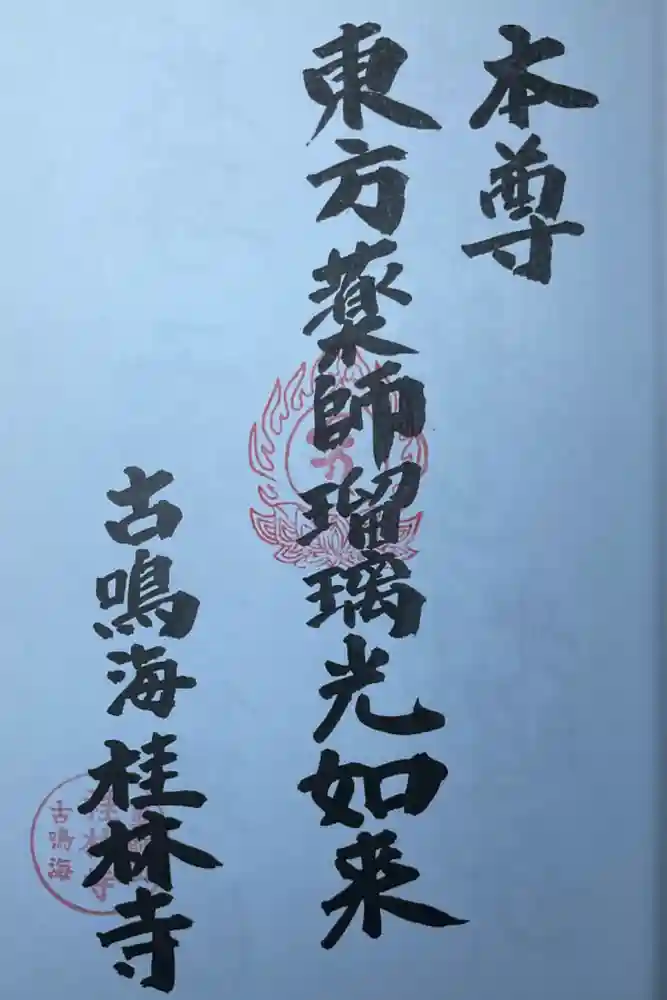 本尊
東方薬師瑠璃光如来
古鳴海桂林寺
古鳴海
桂林寺